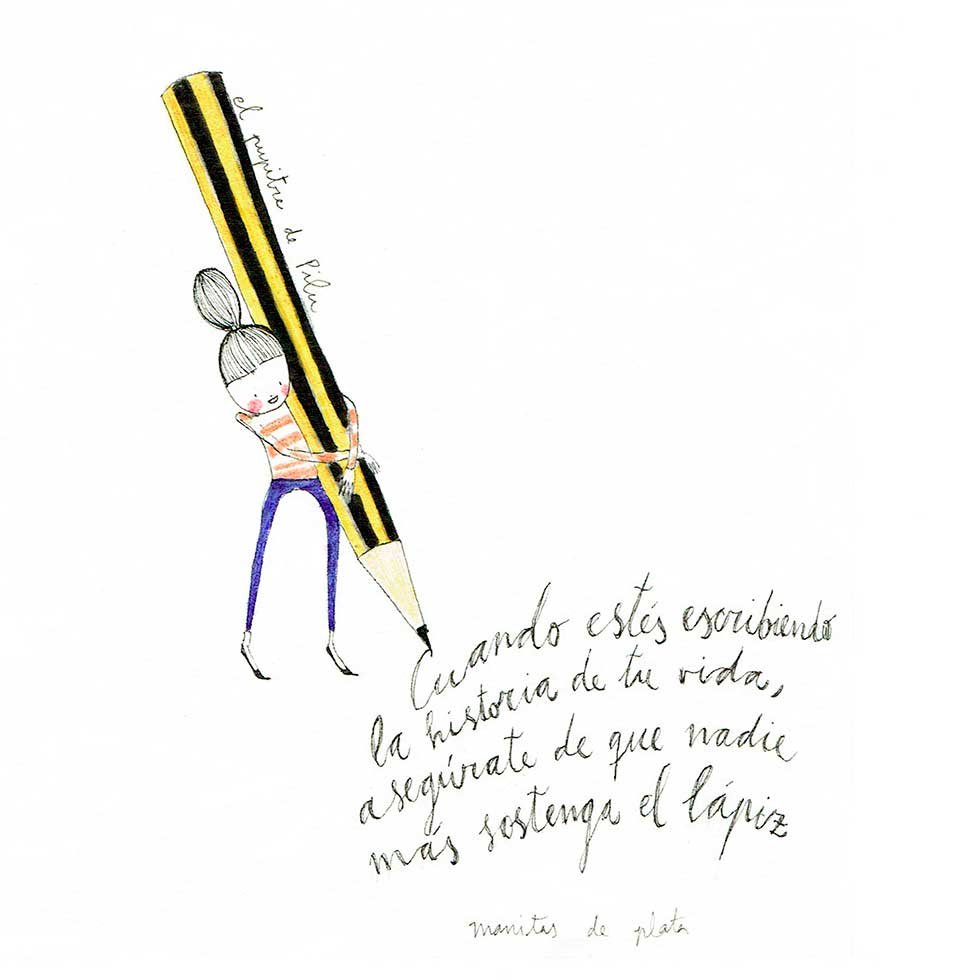 el pupitre de Pilu
Cuando estés escribiendo
la historia de tu vida,
asegúrate de que nadie
más sostenga el lápiz
manitas de plata